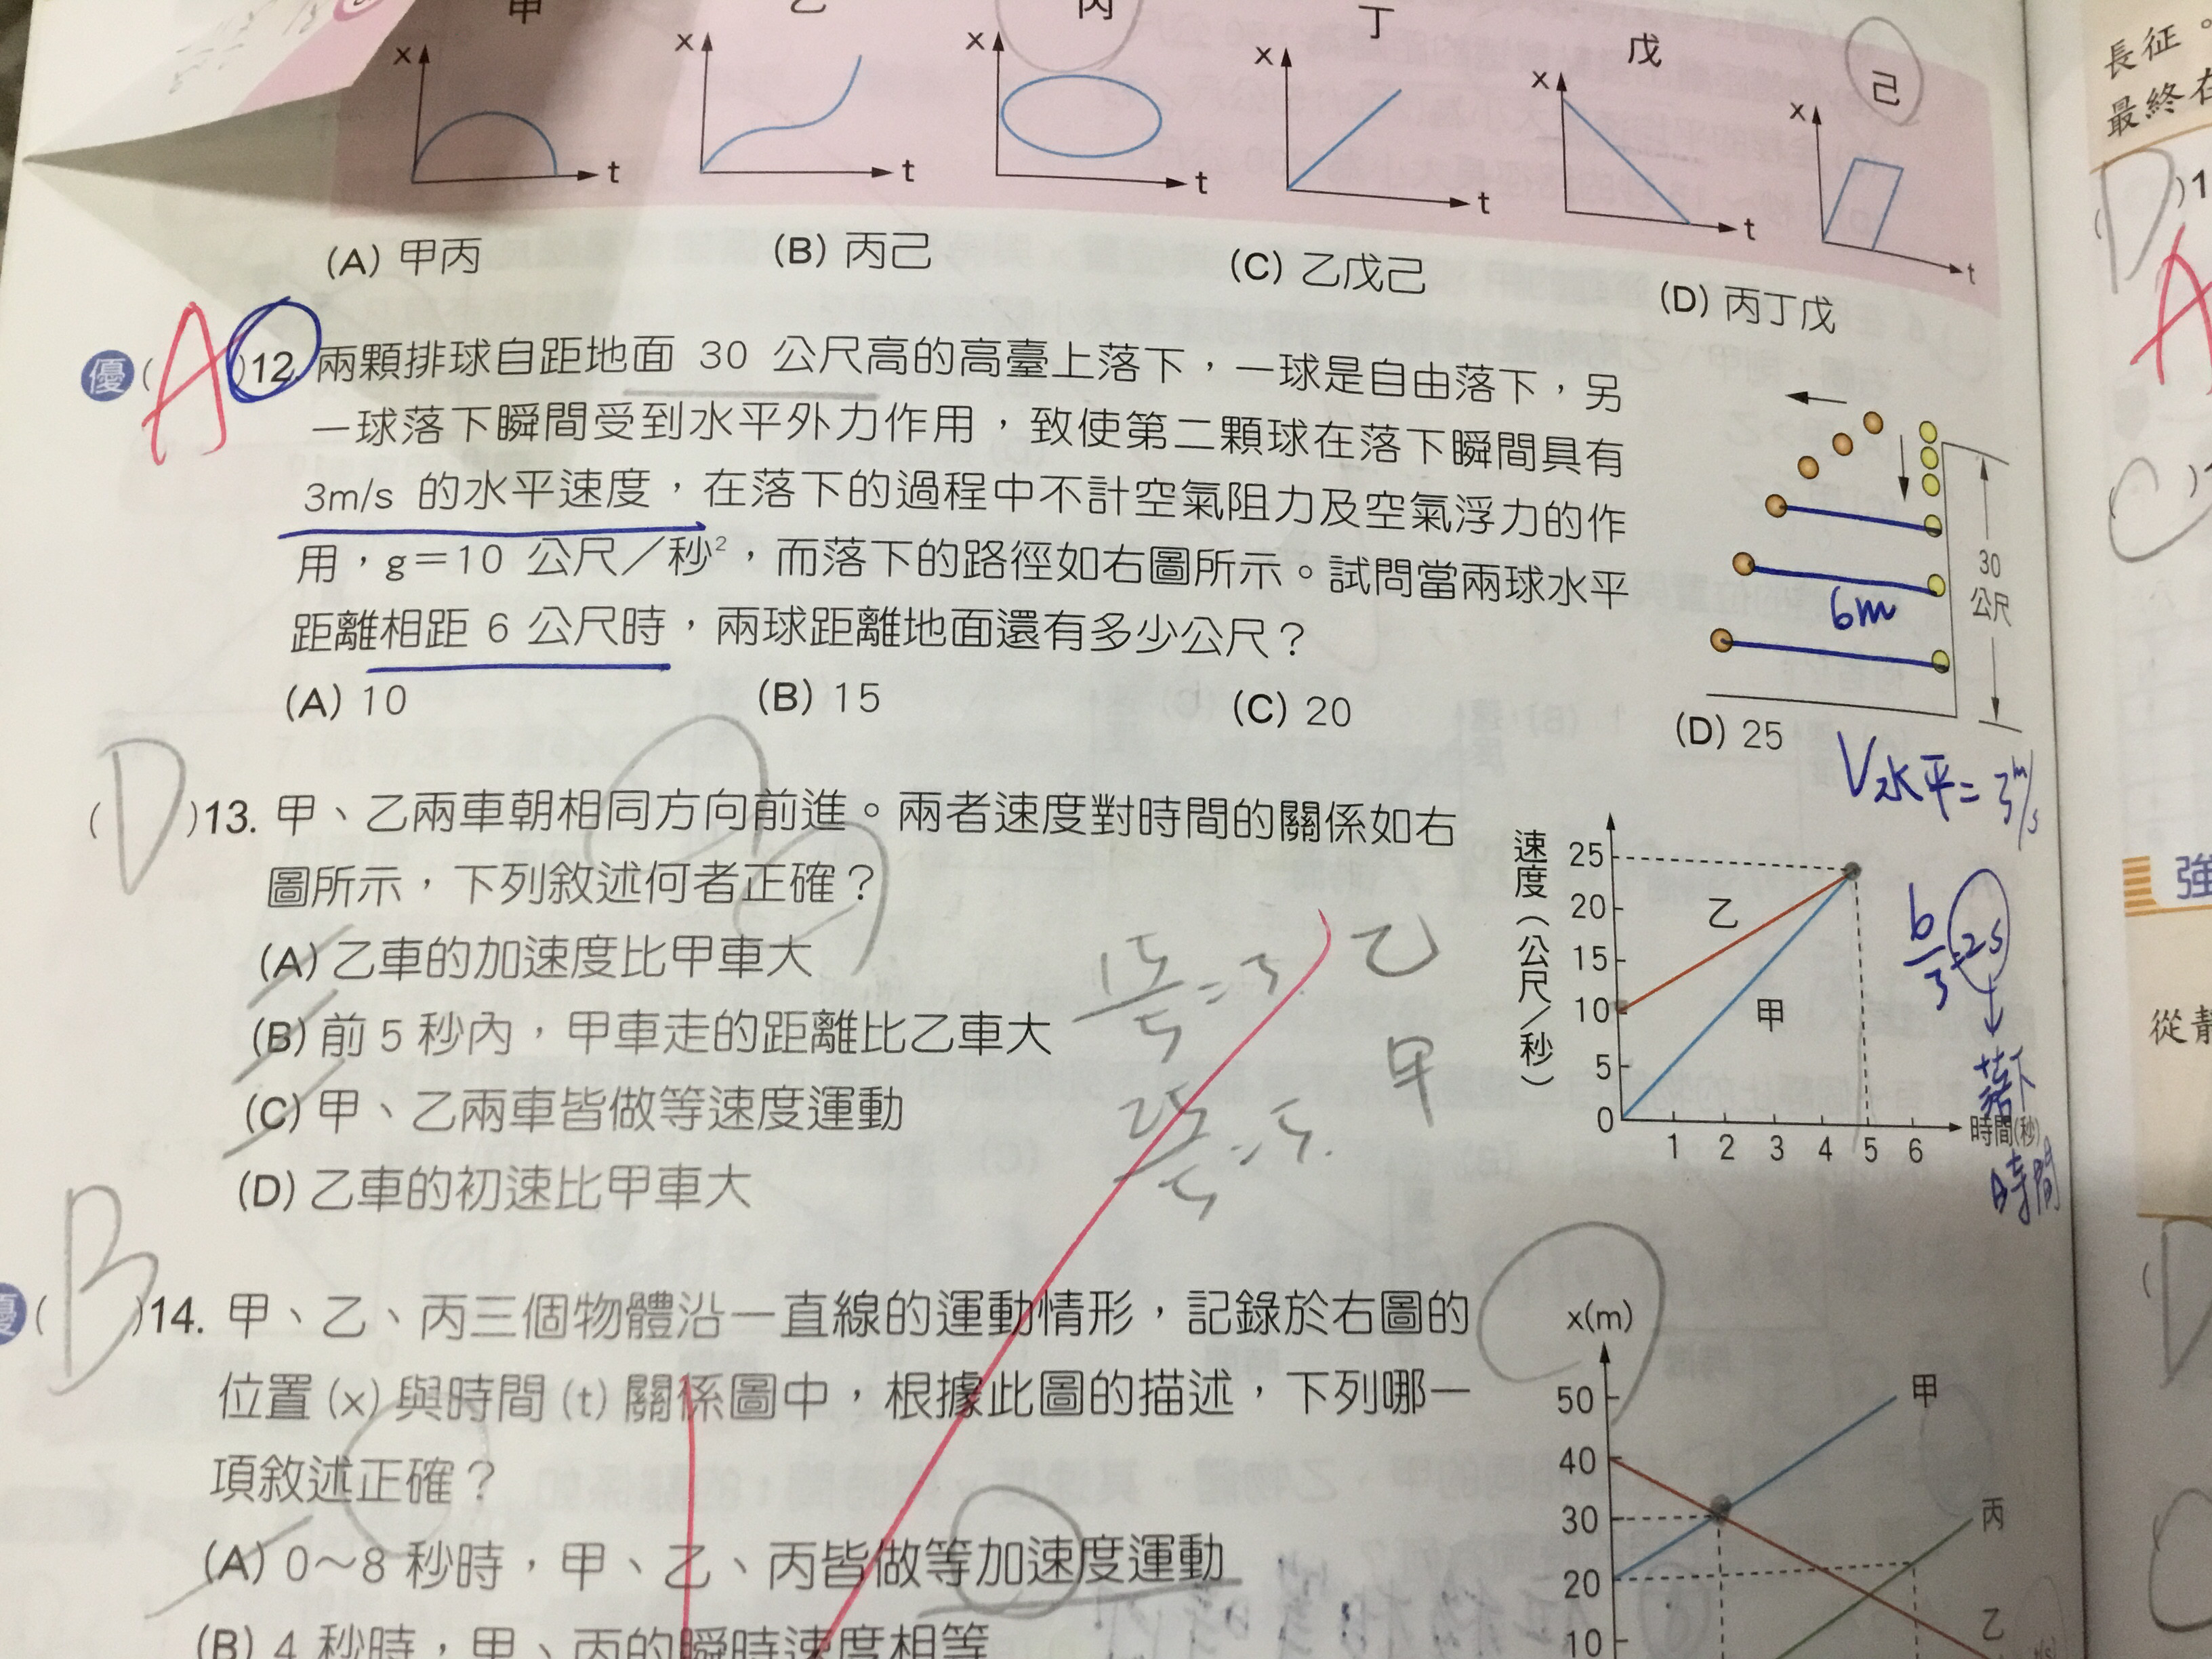 甲 乙 丙 丁 戊 己
x x x x x x
t t t t t t
(A) 甲丙 (B) 丙己 (C) 乙戊己 (D) 丙丁戊
優 ( A )12. 兩顆排球自距地面 30 公尺高的高臺上落下，一球是自由落下，另
一球落下瞬間受到水平外力作用，致使第二顆球在落下瞬間具有
3m/s 的水平速度，在落下的過程中不計空氣阻力及空氣浮力的作
用，g＝10 公尺／秒²，而落下的路徑如右圖所示。試問當兩球水平
距離相距 6 公尺時，兩球距離地面還有多少公尺？
(A) 10 (B) 15 (C) 20 (D) 25
30
公尺
6m
V水平=3m/s
6/3=2s
落下
時間
( D )13. 甲、乙兩車朝相同方向前進。兩者速度對時間的關係如右
圖所示，下列敘述何者正確？
(A) 乙車的加速度比甲車大
(B) 前 5 秒內，甲車走的距離比乙車大
(C) 甲、乙兩車皆做等速度運動
(D) 乙車的初速比甲車大
15/5=3. 乙
25/5=5. 甲
速度（公尺／秒）
25
20
15
10
5
0
乙
甲
1 2 3 4 5 6 時間(秒)
優 ( B )14. 甲、乙、丙三個物體沿一直線的運動情形，記錄於右圖的
位置 (x) 與時間 (t) 關係圖中，根據此圖的描述，下列哪一
項敘述正確？
(A) 0～8 秒時，甲、乙、丙皆做等加速度運動
(B) 4 秒時，甲、丙的瞬時速度相等
x(m)
50
40
30
20
10
甲
丙
乙
長征。
最終在
D )1
A
C
強
從靜